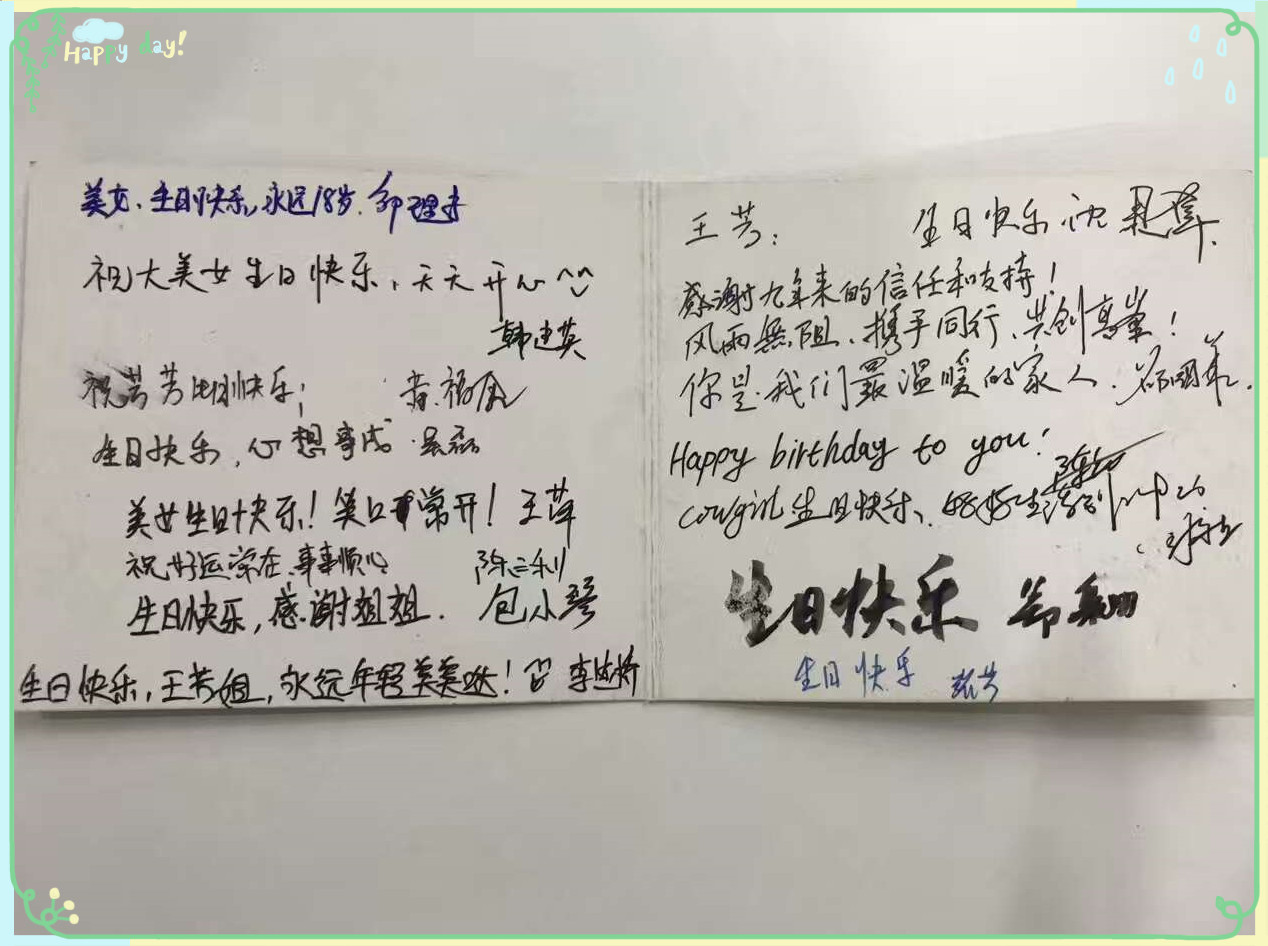 Happy day!
美女、生日快乐,永远18岁.
祝大美女生日快乐,天天开心^^
韩建英
祝芳芳生日快乐;
生日快乐,心想事成 吴磊
美女生日快乐!笑口常开!王萍
祝好运常在、事事顺心 陈三利
生日快乐,感谢姐姐. 包小琴
生日快乐,王芳姐,永远年轻美美哒! 李
王芳:
生日快乐 沈
感谢九年来的信任和支持!
风雨無阻、携手同行、共创高峯!
你是我们最温暖的家人.
Happy birthday to you!
cowgirl 生日快乐、好好生活
生日快乐
生日快乐 张兰